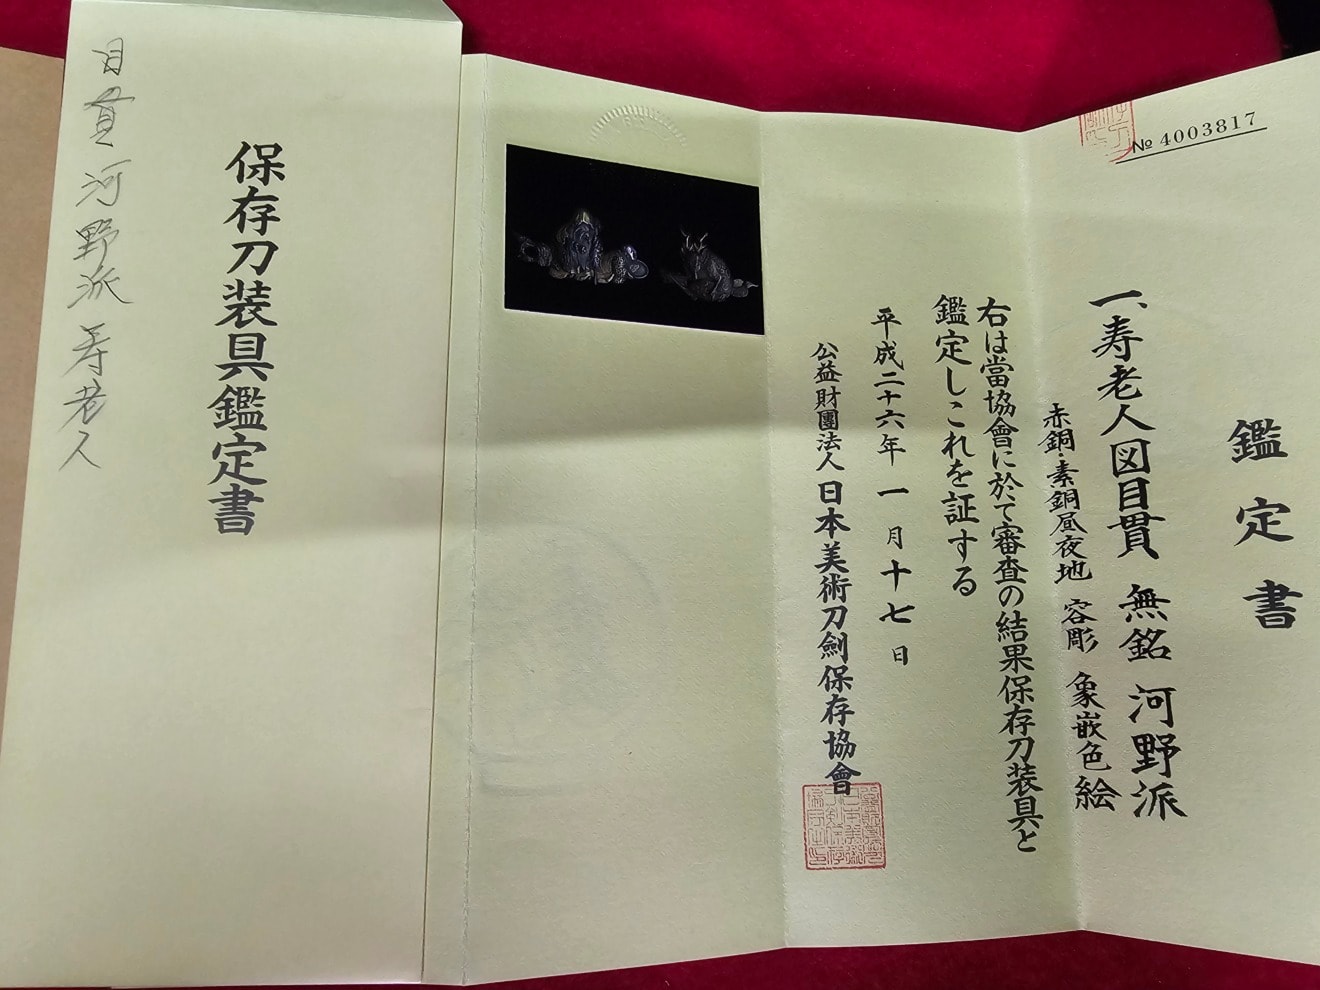 № 4003817
鑑定書
一、寿老人図目貫 無銘 河野派
赤銅・素銅昼夜地 容彫 象嵌色絵
右は當協會に於て審査の結果保存刀装具と
鑑定しこれを証する
平成二十六年 一月十七日
公益財團法人 日本美術刀劍保存協會
保存刀装具鑑定書
目貫 河野派 寿老人